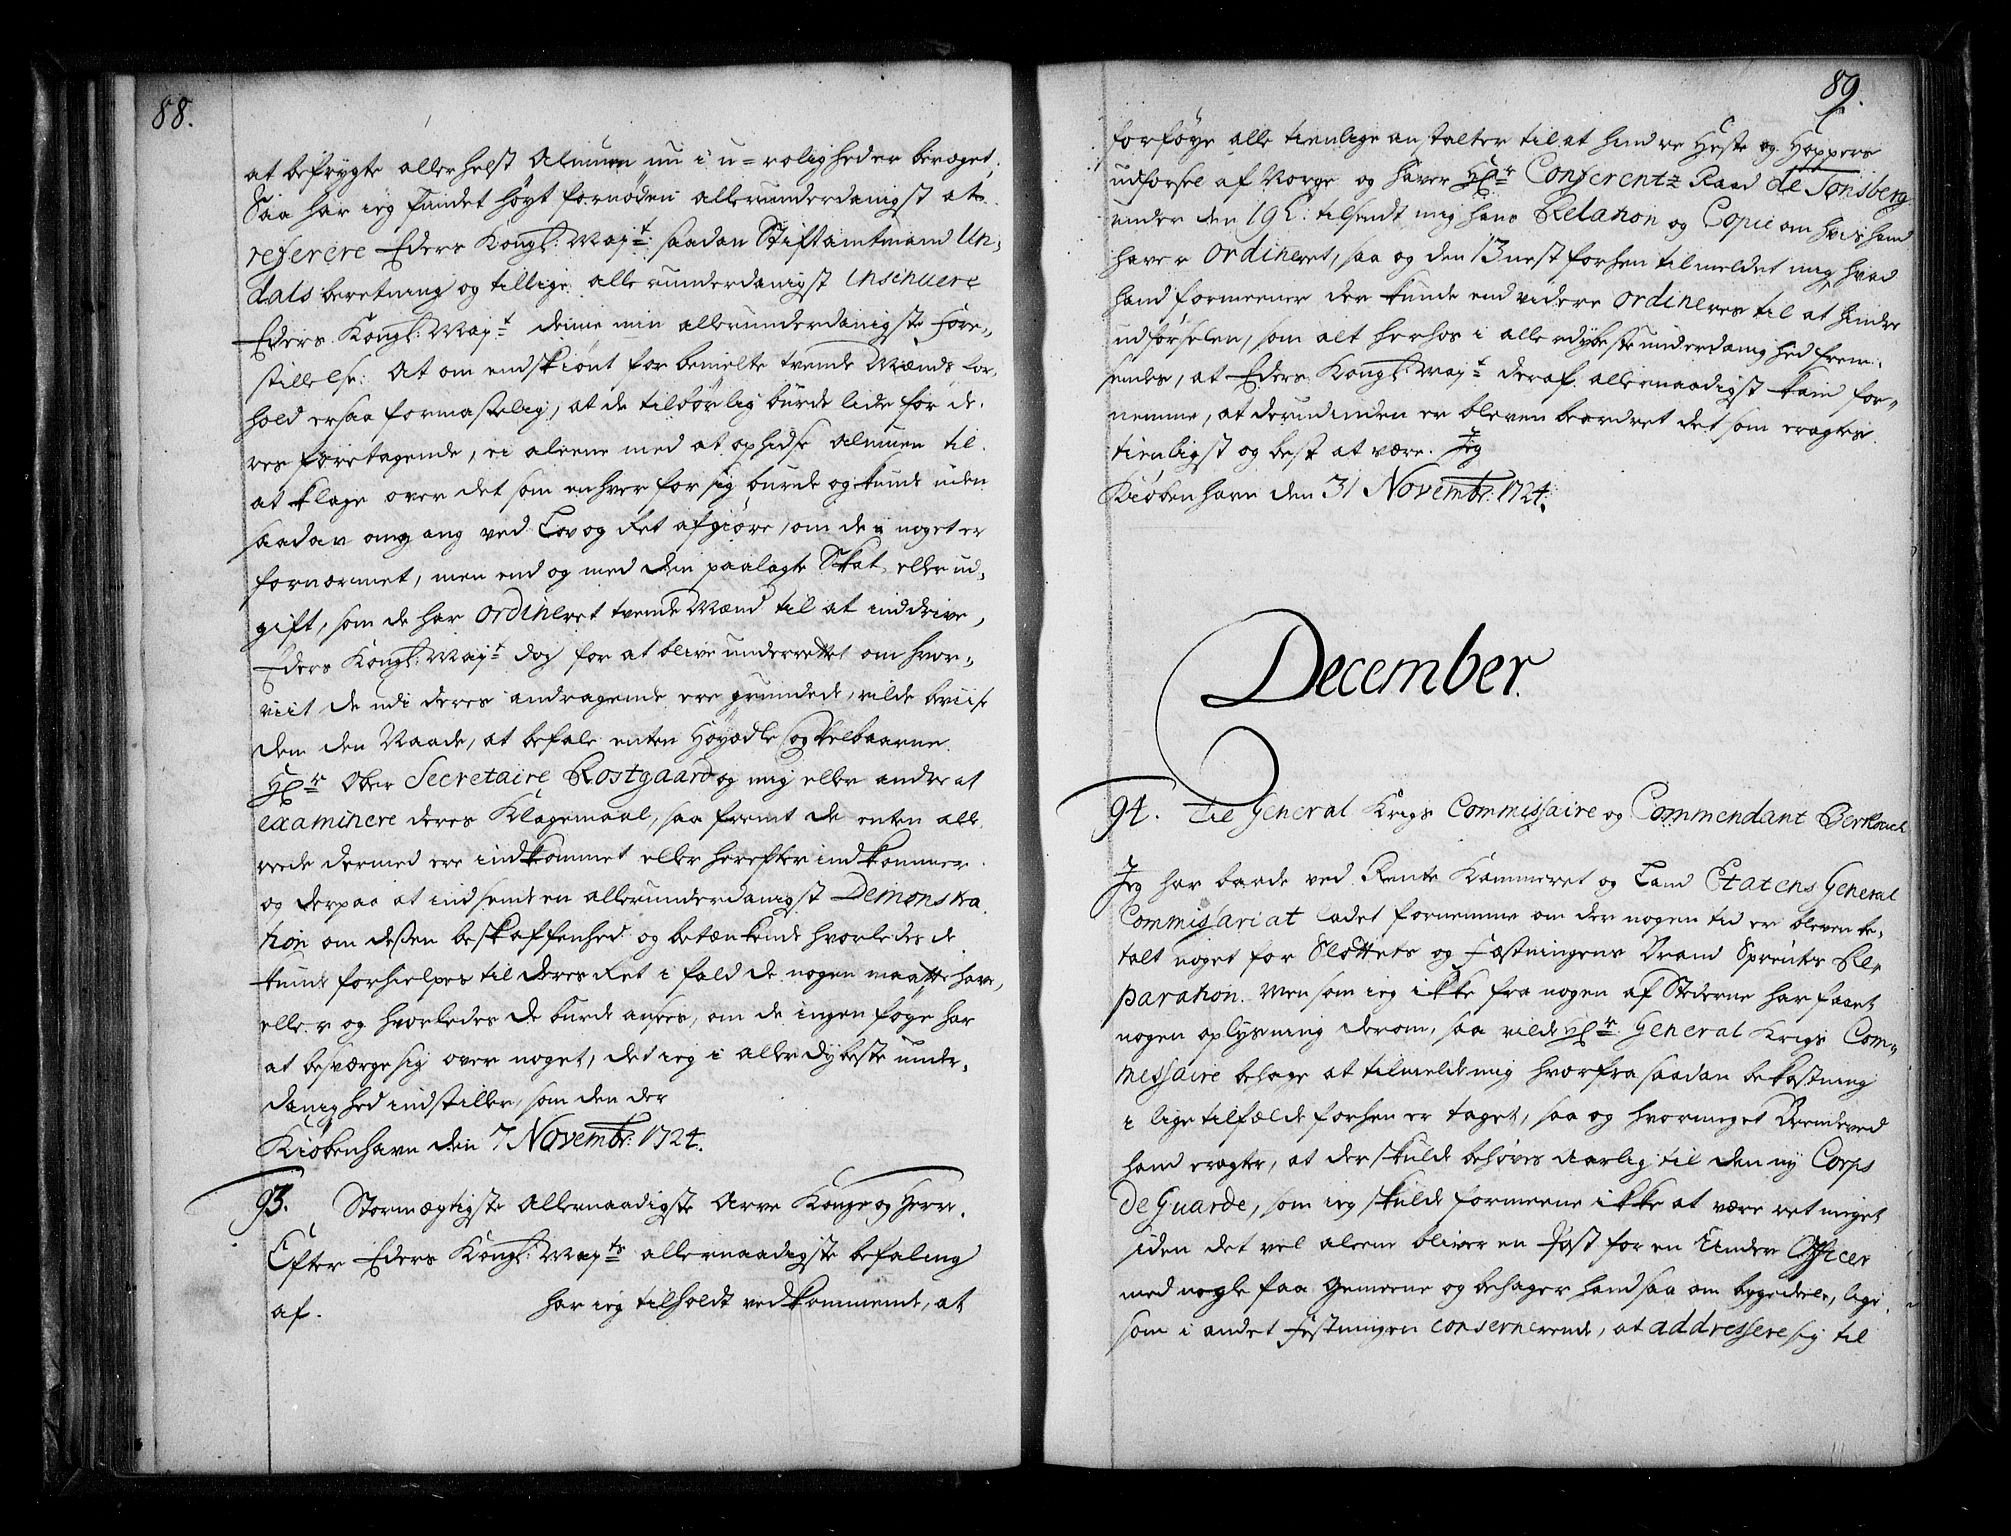 88.
at befrygte allerhelst Almuen nu i u-roligheder bevæget,
Saa har ieg fundet høyt fornøden allerunderdanigst at
referere Eders Kongl: Mayt: saadan Stiftamtmand Un-
dals beretning og tillige allerunderdanigst Insinuere
Eders Kongl: Mayt denne min allerunderdanigste Fore-
stillelse: At om endskiønt forbemelte tvende Mænds for-
hold er saa formastelig, at de tilbørlig burde lide for de-
res foretagende, ei aleene med at ophidse Almuen til
at klage over det som enhver for sig burde og kunde uden
saadan omgang ved Lov og Ret afgiøre, om de i noget er
fornærmet, men end og med den paalagte Skat eller ud-
gift, som de har ordineret tvende Mænd til at inddrive,
Eders Kongl: Mayt dog for at blive underrettet om hvor-
viit de udi deres andragende ere grundede, vilde beviise
dem den Naade, at befale enten Høyædle og Velbaarne
Hr Ober Secretaire Rostgaard og mig eller andre at
examinere deres Klagemaal, saa fremt de enten alle-
rede dermed ere indkommet eller herefter indkommer
og derpaa at indsende en allerunderdanigst Demonstra-
tion om dessen beskaffenhed og betænkende hvorledes de
kunde forhielpes til deres Ret i fald de nogen maatte have,
eller og hvorledes de burde ansees, om de ingen føye har
at besværge sig over noget, det ieg i aller dybeste under-
danighed indstiller, som den der
Kiøbenhavn den 7 Novembr: 1724.
93. Stormægtigste Allernaadigste Arve Konge og Herre.
Efter Eders Kongl: Mayts allernaadigste befaling
af. har ieg tilholdt vedkommende, at
89.
forføye alle tienlige anstalter til at hindre Heste og Hoppers
udførsel af Norge og haver Hr Conferentz Raad de Tonsberg
under den 19 tilsendt mig hans Relation og Copie om hvis hand
haver ordineret, saa og den 13 nest forhen tilmeldet mig hvad
hand formeener der kunde endvidere ordineres til at hindre
udførselen, som alt herhos i allerdybeste underdanighed frem-
sendes, at Eders Kongl: Mayt deraf allernaadigst kand for-
nemme, at derudinden er bleven beordret det som eragtes
tienligst og best at være. Jeg
Kiøbenhavn den 31 Novembr: 1724.
December.
94. Til General Krigs Commissaire og Commendant
Jeg har baade ved Rente Kammeret og Land Etatens General
Commissariat ladet fornemme om der nogen tid er bleven be-
talt noget for Slottets og Fæstningens Brand Sprøiters Re-
paration. Men som ieg ikke fra nogen af Stederne har faaet
nogen oplysning derom, saa vilde Hr General Krigs Com-
missaire behage at tilmelde mig hvorfra saadan bekostning
i lige tilfælde forhen er taget, saa og hvormeget Brendeved
hand eragter, at der skulde behøves Aarlig til den ny Corps
de Guarde, som ieg skulde formeene ikke at være ret meget
siden det vel aleene bliver en Post for en Under Officer
med nogle faa Gemeene og behager hand saa om begedele, lige-
som i andet Festningen concernerende, at addressere sig til